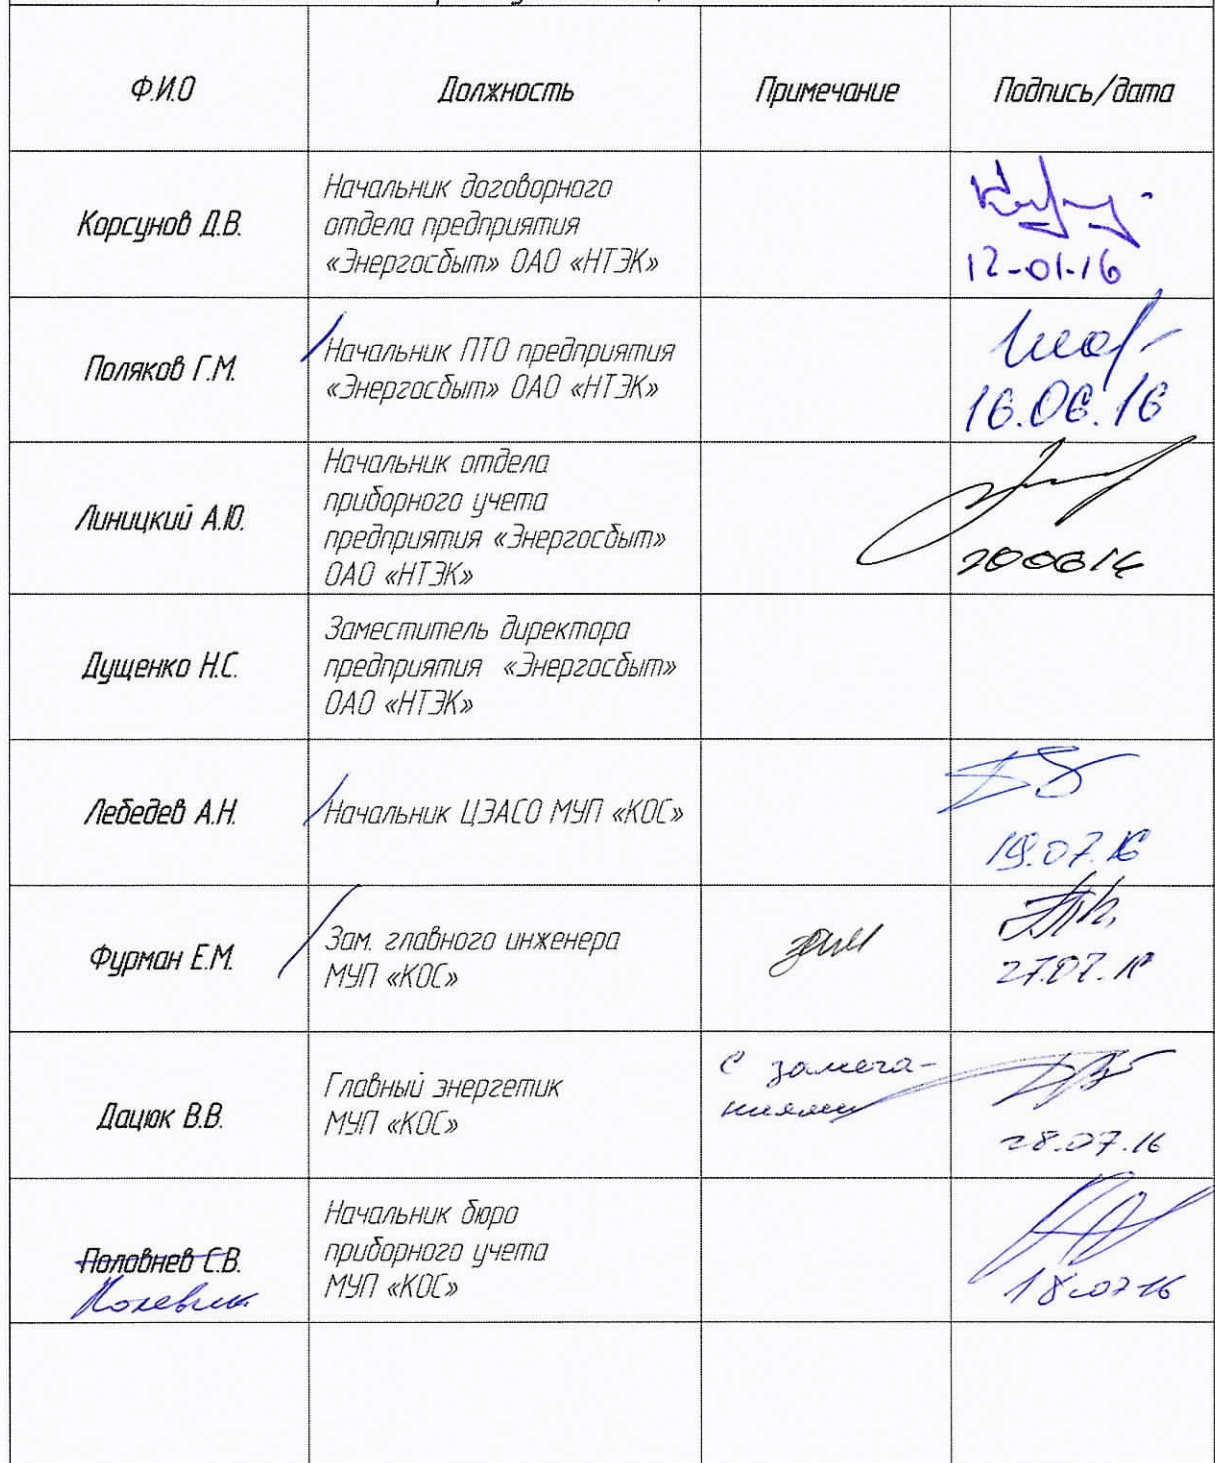 Ф.И.О Должность Примечание Подпись/дата
Корсунов Д.В.
Начальник договорного
отдела предприятия
«Энергосбыт» ОАО «НТЭК»
12-01-16
Поляков Г.М.
Начальник ПТО предприятия
«Энергосбыт» ОАО «НТЭК»
16.06.16
Линицкий А.Ю.
Начальник отдела
приборного учета
предприятия «Энергосбыт»
ОАО «НТЭК»
200616
Дущенко Н.С.
Заместитель директора
предприятия «Энергосбыт»
ОАО «НТЭК»
Лебедев А.Н.
Начальник ЦЭАСО МУП «КОС»
19.07.16
Фурман Е.М.
Зам. главного инженера
МУП «КОС»
27.07.16
Дацюк В.В.
Главный энергетик
МУП «КОС»
с замеча-
ниями
28.07.16
Половнев С.В.
Начальник бюро
приборного учета
МУП «КОС»
18.07.16